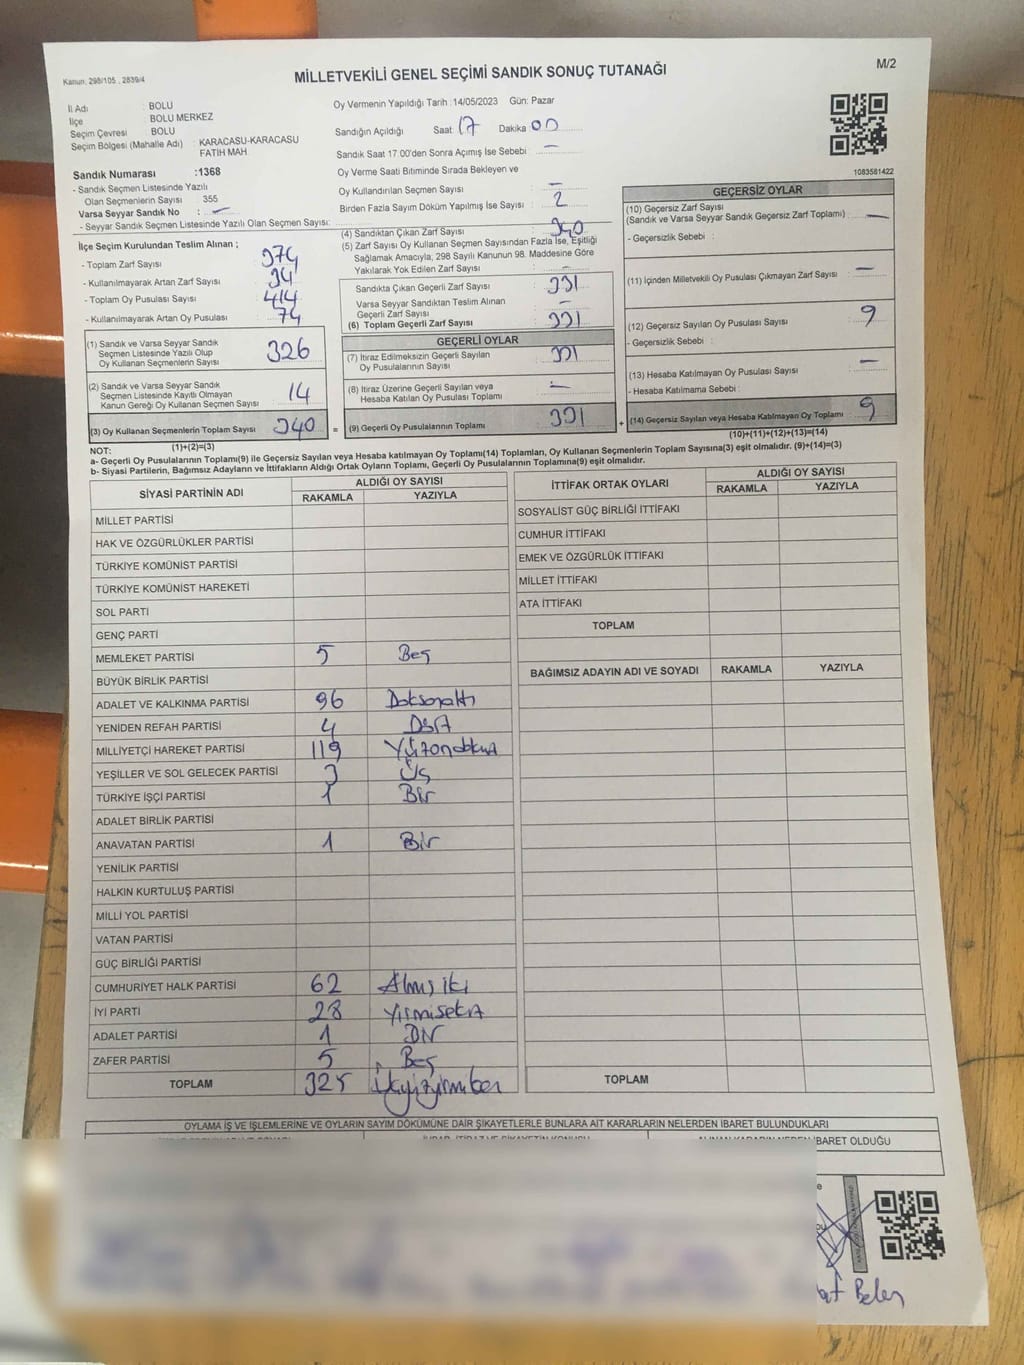 Kanun, 298/105 , 2839/4
MİLLETVEKİLİ GENEL SEÇİMİ SANDIK SONUÇ TUTANAĞI
M/2
İl Adı : BOLU
İlçe : BOLU MERKEZ
Seçim Çevresi : BOLU
Seçim Bölgesi (Mahalle Adı) : KARACASU-KARACASU
FATİH MAH.
Sandık Numarası :1368
- Sandık Seçmen Listesinde Yazılı
Olan Seçmenlerin Sayısı 355
Varsa Seyyar Sandık No : -
- Seyyar Sandık Seçmen Listesinde Yazılı Olan Seçmen Sayısı:
Oy Vermenin Yapıldığı Tarih :14/05/2023 Gün: Pazar
Sandığın Açıldığı Saat: 17 Dakika: 00
Sandık Saat 17.00'den Sonra Açımış İse Sebebi : -
Oy Verme Saati Bitiminde Sırada Bekleyen ve
Oy Kullandırılan Seçmen Sayısı : -
Birden Fazla Sayım Döküm Yapılmış İse Sayısı : 2
1083581422
İlçe Seçim Kurulundan Teslim Alınan ;
- Toplam Zarf Sayısı 374
- Kullanılmayarak Artan Zarf Sayısı 34
- Toplam Oy Pusulası Sayısı 414
- Kullanılmayarak Artan Oy Pusulası 74
(1) Sandık ve Varsa Seyyar Sandık
Seçmen Listesinde Yazılı Olup
Oy Kullanan Seçmenlerin Sayısı 326
(2) Sandık ve Varsa Seyyar Sandık
Seçmen Listesinde Kayıtlı Olmayan
Kanun Gereği Oy Kullanan Seçmen Sayısı 14
(3) Oy Kullanan Seçmenlerin Toplam Sayısı 340
(4) Sandıktan Çıkan Zarf Sayısı : 340
(5) Zarf Sayısı Oy Kullanan Seçmen Sayısından Fazla İse, Eşitliği
Sağlamak Amacıyla, 298 Sayılı Kanunun 98. Maddesine Göre
Yakılarak Yok Edilen Zarf Sayısı : -
Sandıkta Çıkan Geçerli Zarf Sayısı : 331
Varsa Seyyar Sandıktan Teslim Alınan
Geçerli Zarf Sayısı : -
(6) Toplam Geçerli Zarf Sayısı : 331
GEÇERLİ OYLAR
(7) İtiraz Edilmeksizin Geçerli Sayılan
Oy Pusulalarının Sayısı : 331
(8) İtiraz Üzerine Geçerli Sayılan veya
Hesaba Katılan Oy Pusulası Toplamı : -
= (9) Geçerli Oy Pusulalarının Toplamı 331
GEÇERSİZ OYLAR
(10) Geçersiz Zarf Sayısı
(Sandık ve Varsa Seyyar Sandık Geçersiz Zarf Toplamı) : -
- Geçersizlik Sebebi :
(11) İçinden Milletvekili Oy Pusulası Çıkmayan Zarf Sayısı : -
(12) Geçersiz Sayılan Oy Pusulası Sayısı : 9
- Geçersizlik Sebebi :
(13) Hesaba Katılmayan Oy Pusulası Sayısı : -
- Hesaba Katılmama Sebebi :
+ (14) Geçersiz Sayılan veya Hesaba Katılmayan Oy Toplamı : 9
(1)+(2)=(3)
(10)+(11)+(12)+(13)=(14)
NOT:
a- Geçerli Oy Pusulalarının Toplamı(9) ile Geçersiz Sayılan veya Hesaba katılmayan Oy Toplamı(14) Toplamları, Oy Kullanan Seçmenlerin Toplam Sayısına(3) eşit olmalıdır. (9)+(14)=(3)
b- Siyasi Partilerin, Bağımsız Adayların ve İttifakların Aldığı Ortak Oyların Toplamı, Geçerli Oy Pusulalarının Toplamına(9) eşit olmalıdır.
SİYASİ PARTİNİN ADI
ALDIĞI OY SAYISI
RAKAMLA YAZIYLA
MİLLET PARTİSİ
HAK VE ÖZGÜRLÜKLER PARTİSİ
TÜRKİYE KOMÜNİST PARTİSİ
TÜRKİYE KOMÜNİST HAREKETİ
SOL PARTİ
GENÇ PARTİ
MEMLEKET PARTİSİ 5 Beş
BÜYÜK BİRLİK PARTİSİ
ADALET VE KALKINMA PARTİSİ 96 Doksanaltı
YENİDEN REFAH PARTİSİ 4 Dört
MİLLİYETÇİ HAREKET PARTİSİ 119 Yüzondokuz
YEŞİLLER VE SOL GELECEK PARTİSİ 3 Üç
TÜRKİYE İŞÇİ PARTİSİ 1 Bir
ADALET BİRLİK PARTİSİ
ANAVATAN PARTİSİ 1 Bir
YENİLİK PARTİSİ
HALKIN KURTULUŞ PARTİSİ
MİLLİ YOL PARTİSİ
VATAN PARTİSİ
GÜÇ BİRLİĞİ PARTİSİ
CUMHURİYET HALK PARTİSİ 62 Altmış iki
İYİ PARTİ 28 Yirmisekiz
ADALET PARTİSİ 1 Bir
ZAFER PARTİSİ 5 Beş
TOPLAM 325 Üçyüzyirmibeş
İTTİFAK ORTAK OYLARI
ALDIĞI OY SAYISI
RAKAMLA YAZIYLA
SOSYALİST GÜÇ BİRLİĞİ İTTİFAKI
CUMHUR İTTİFAKI
EMEK VE ÖZGÜRLÜK İTTİFAKI
MİLLET İTTİFAKI
ATA İTTİFAKI
TOPLAM
BAĞIMSIZ ADAYIN ADI VE SOYADI RAKAMLA YAZIYLA
TOPLAM
OYLAMA İŞ VE İŞLEMLERİNE VE OYLARIN SAYIM DÖKÜMÜNE DAİR ŞİKAYETLERLE BUNLARA AİT KARARLARIN NELERDEN İBARET BULUNDUKLARI
İBARET OLDUĞU